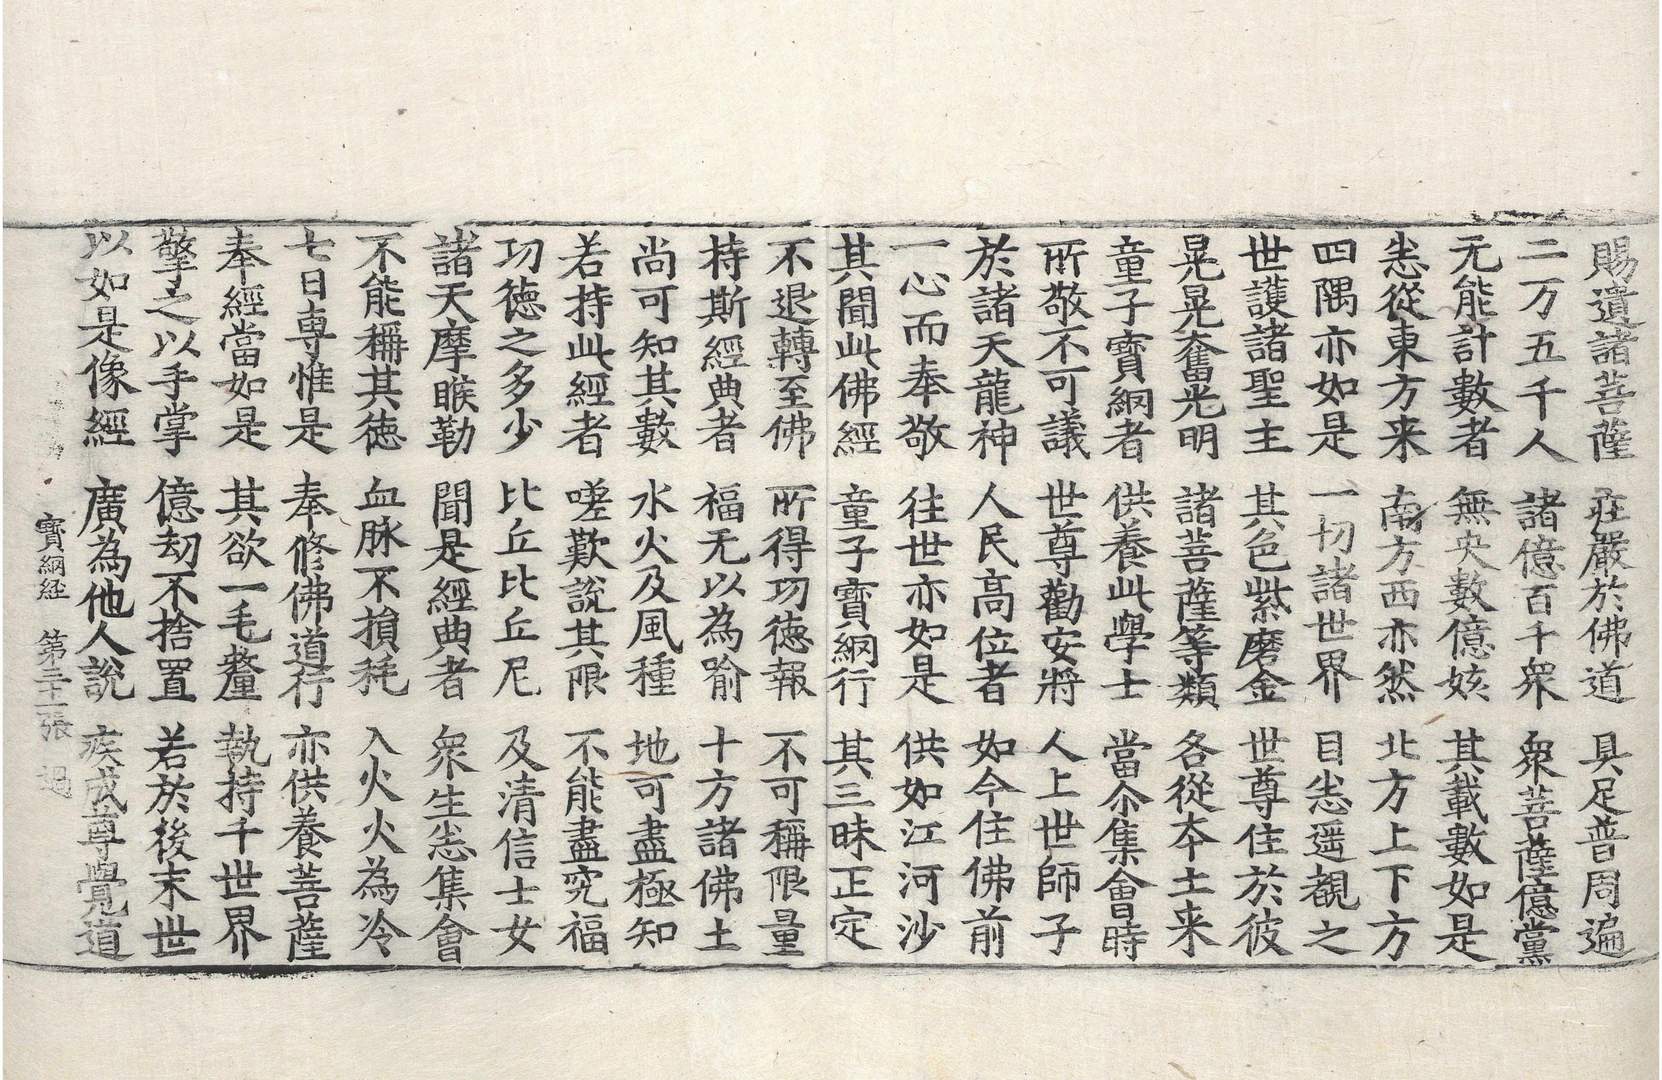 賜遺諸菩薩　莊嚴於佛道　具足普周遍
二万五千人　諸億百千衆　衆菩薩億黨
无能計數者　無央數億姟　其載數如是
悉從東方来　南方西亦然　北方上下方
四隅亦如是　一切諸世界　目悉遥覩之
世護諸聖主　其色紫磨金　世尊住於彼
晃晃奮光明　諸菩薩等類　各從本土来
童子寳網者　供養此學士　當尒集會時
所敬不可議　世尊勸安將　人上世師子
於諸天龍神　人民高位者　如今住佛前
一心而奉敬　往世亦如是　供如江河沙
其聞此佛經　童子寳網行　其三昧正定
不退轉至佛　所得功德報　不可稱限量
持斯經典者　福无以為喻　十方諸佛土
尚可知其數　水火及風種　地可盡極知
若持此經者　嗟歎說其限　不能盡究福
功德之多少　比丘比丘尼　及清信士女
諸天摩睺勒　聞是經典者　衆生悉集會
不能稱其德　血脉不損耗　入火火為冷
七日專惟是　奉修佛道行　亦供養菩薩
奉經當如是　其欲一毛氂　執持千世界
擎之以手掌　億劫不捨置　若於後末世
以如是像經　廣為他人說　疾成尊覺道
寳網経　第二十一張　過